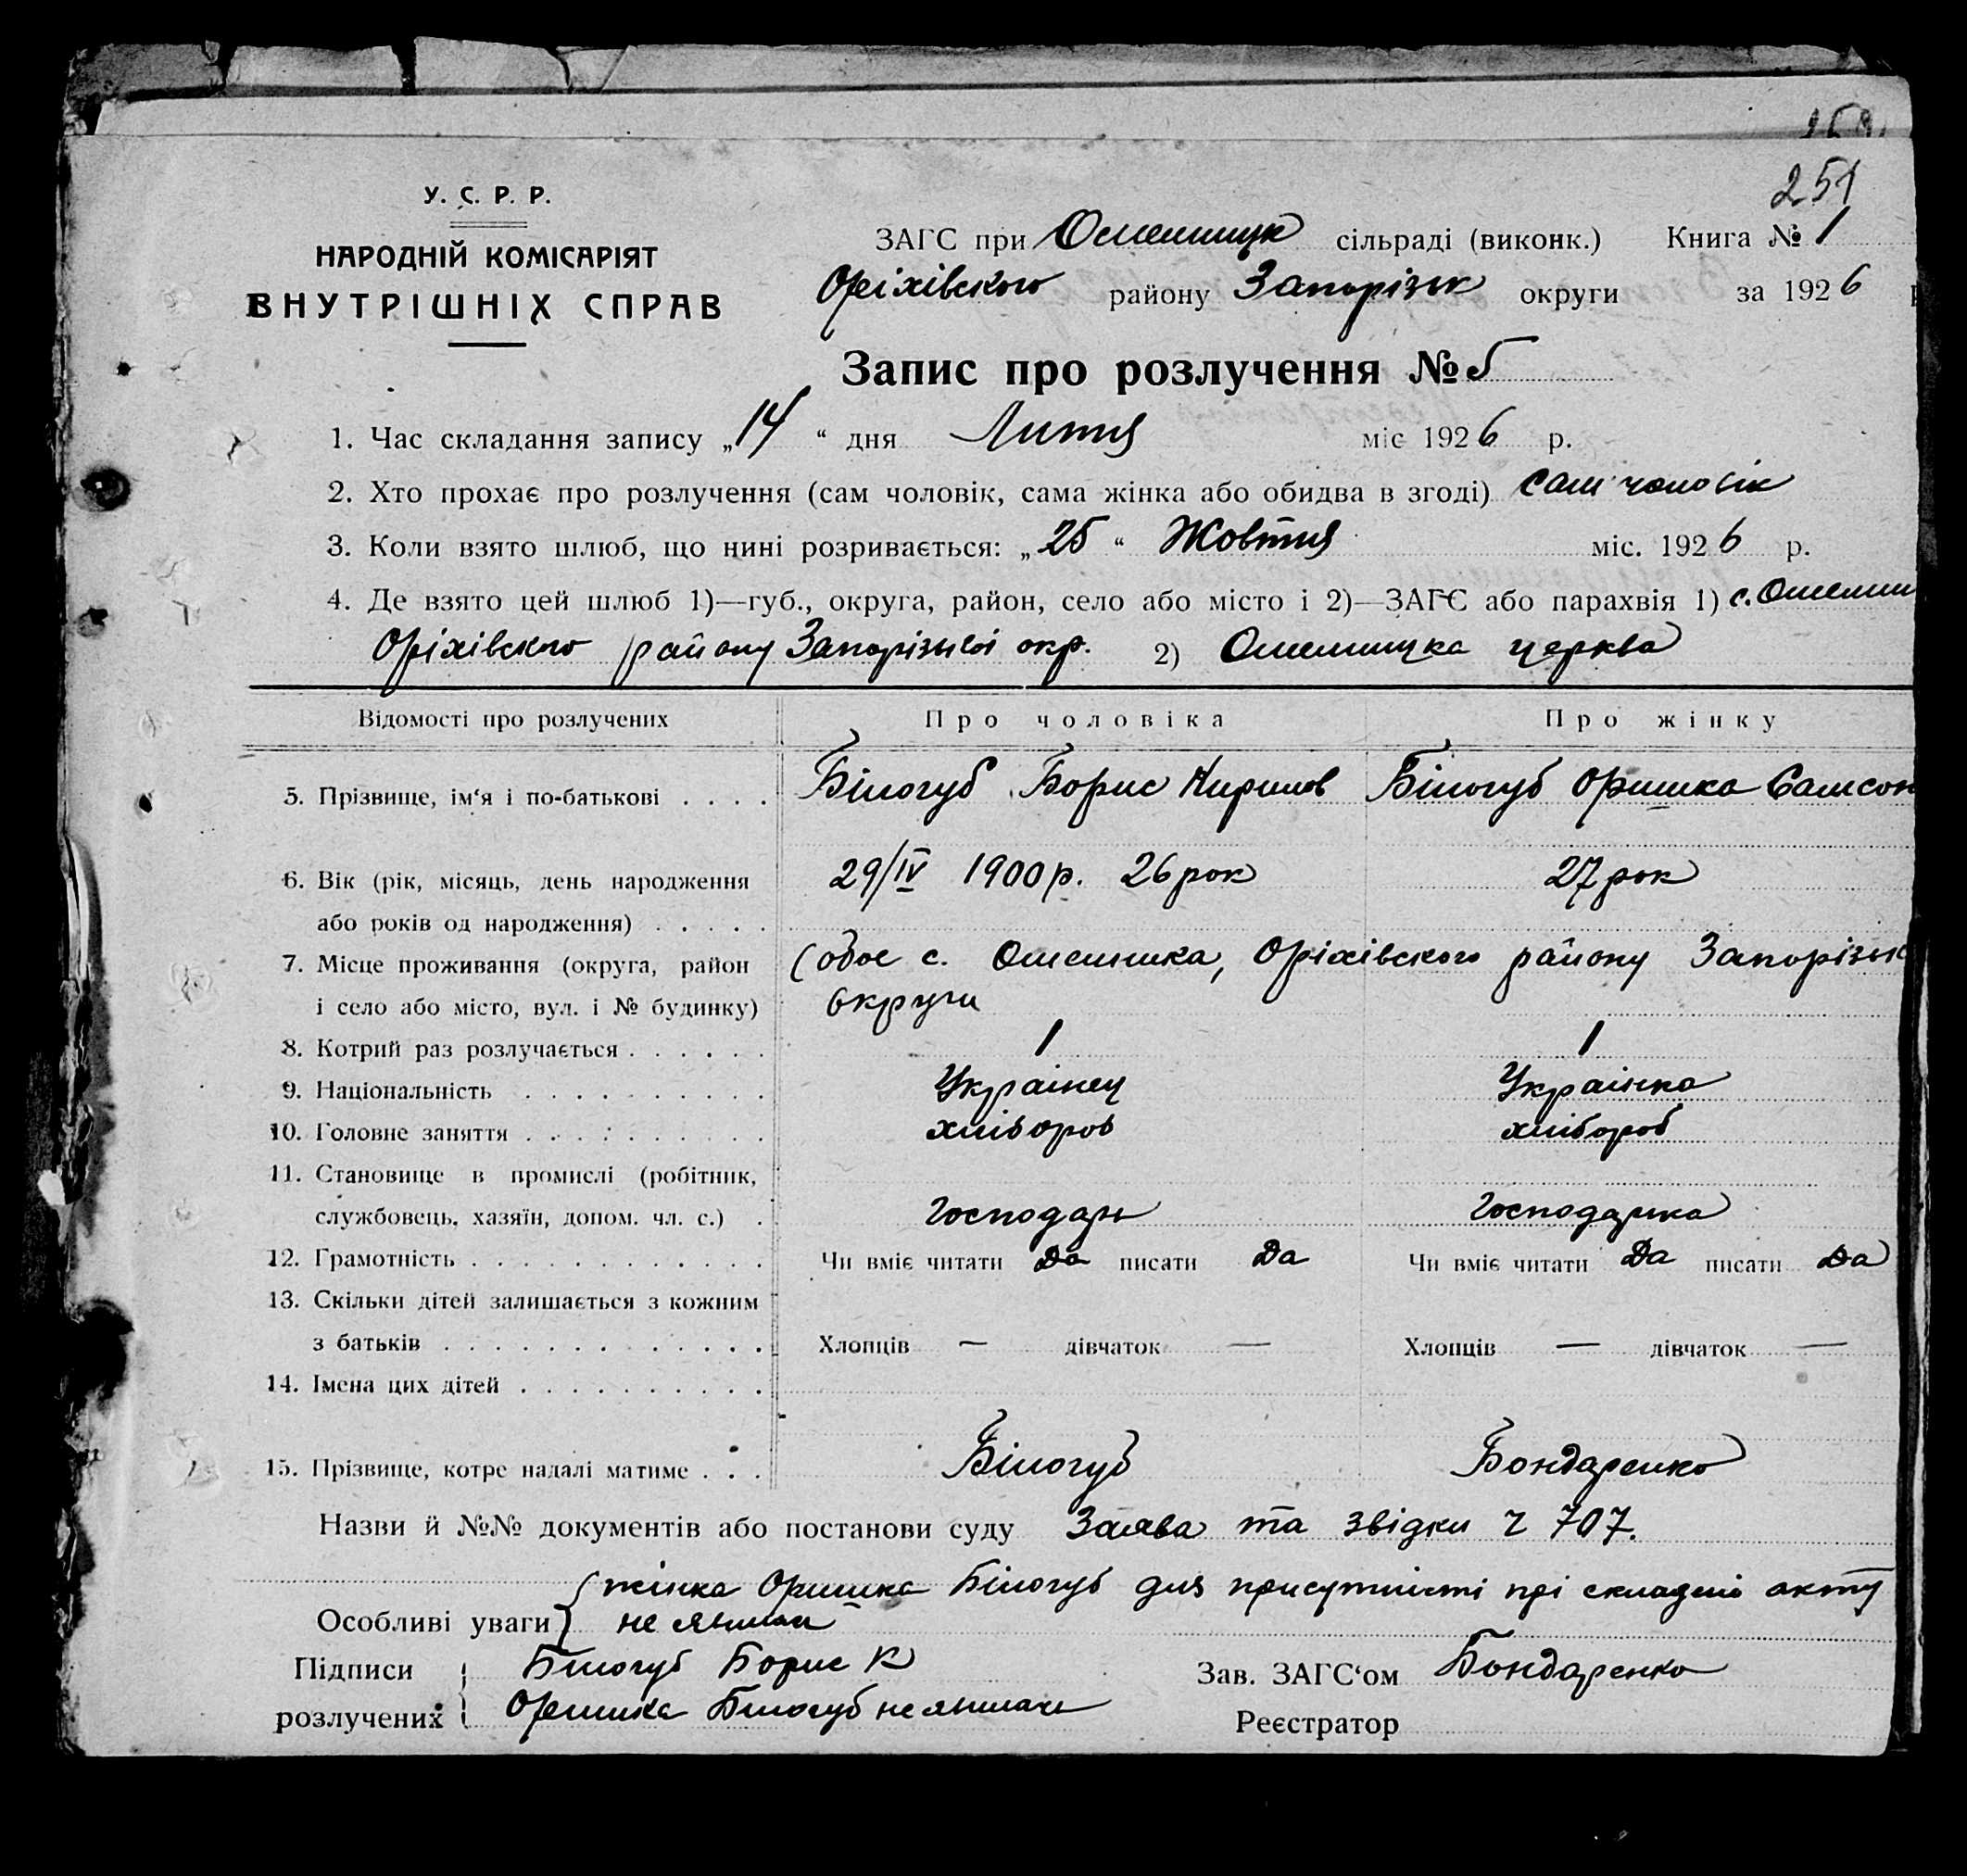 251
У. С. Р. Р.
НАРОДНІЙ КОМІСАРІЯТ
ВНУТРІШНІХ СПРАВ
ЗАГС при Омельницк сільраді (виконк.) Книга № 1
Оріхівского району Запорізьк округи за 1926
Запис про розлучення № 5
1. Час складання запису „14“ дня Липня міс 1926 р.
2. Хто прохає про розлучення (сам чоловік, сама жінка або обидва в згоді) сам чоловік
3. Коли взято шлюб, що нині розривається: „25“ Жовтня міс. 1926 р.
4. Де взято цей шлюб 1)—губ., округа, район, село або місто і 2)—ЗАГС або парахвія 1) с. Омельн
Оріхівского району Запорізької окр. 2) Омельницка церква
Відомості про розлучених Про чоловіка Про жінку
5. Прізвище, ім‘я і по-батькові . . . . Білогуб Борис Кирилов Білогуб Оришка Самсон
6. Вік (рік, місяць, день народження 29/IV 1900 р. 26 рок 27 рок
або років од народження) . . . . .
7. Місце проживання (округа, район (обоє с. Омельника, Оріхівского району Запорізьк
і село або місто, вул. і № будинку) округи
8. Котрий раз розлучається . . . . . . 1 1
9. Національність . . . . . . . . . . Українец Українка
10. Головне заняття . . . . . . . . . . хлібороб хлібороб
11. Становище в промислі (робітник,
службовець, хазяїн, допом. чл. с.) . господарь господарка
12. Грамотність . . . . . . . . . . . . Чи вміє читати Да писати Да Чи вміє читати Да писати Да
13. Скільки дітей залишається з кожним
з батьків . . . . . . . . . . . . . Хлопців — дівчаток — Хлопців — дівчаток —
14. Імена цих дітей . . . . . . . . . .
15. Прізвище, котре надалі матиме . . . Білогуб Бондаренко
Назви й №№ документів або постанови суду Заява та звідки ч 707.
жінка Оришка Білогуб для присутністі прі складені акту
Особливі уваги не явилась
Підписи Білогуб Борис К Зав. ЗАГС‘ом Бондаренко
розлучених Оришка Білогуб не явилась Реєстратор